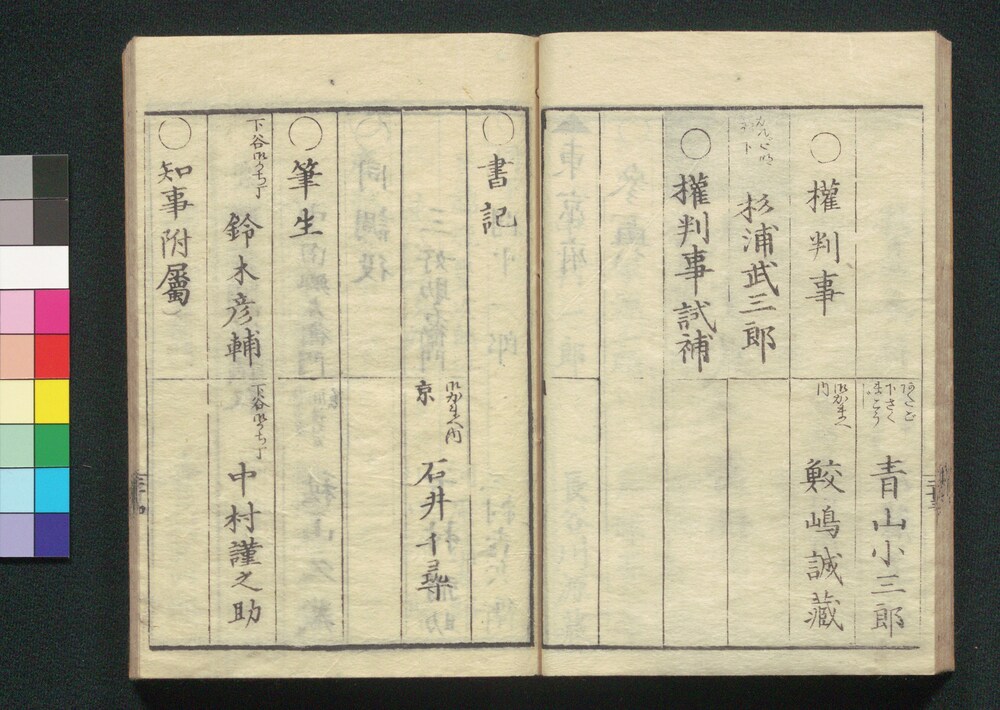 青山小三郎
○權判事
鮫嶋誠藏
杉浦武三郎
○權判事試補
○書記
京
石井千尋
○筆生
下谷御かち丁
鈴木彦輔
下谷御かち丁
中村謹之助
○知事附屬